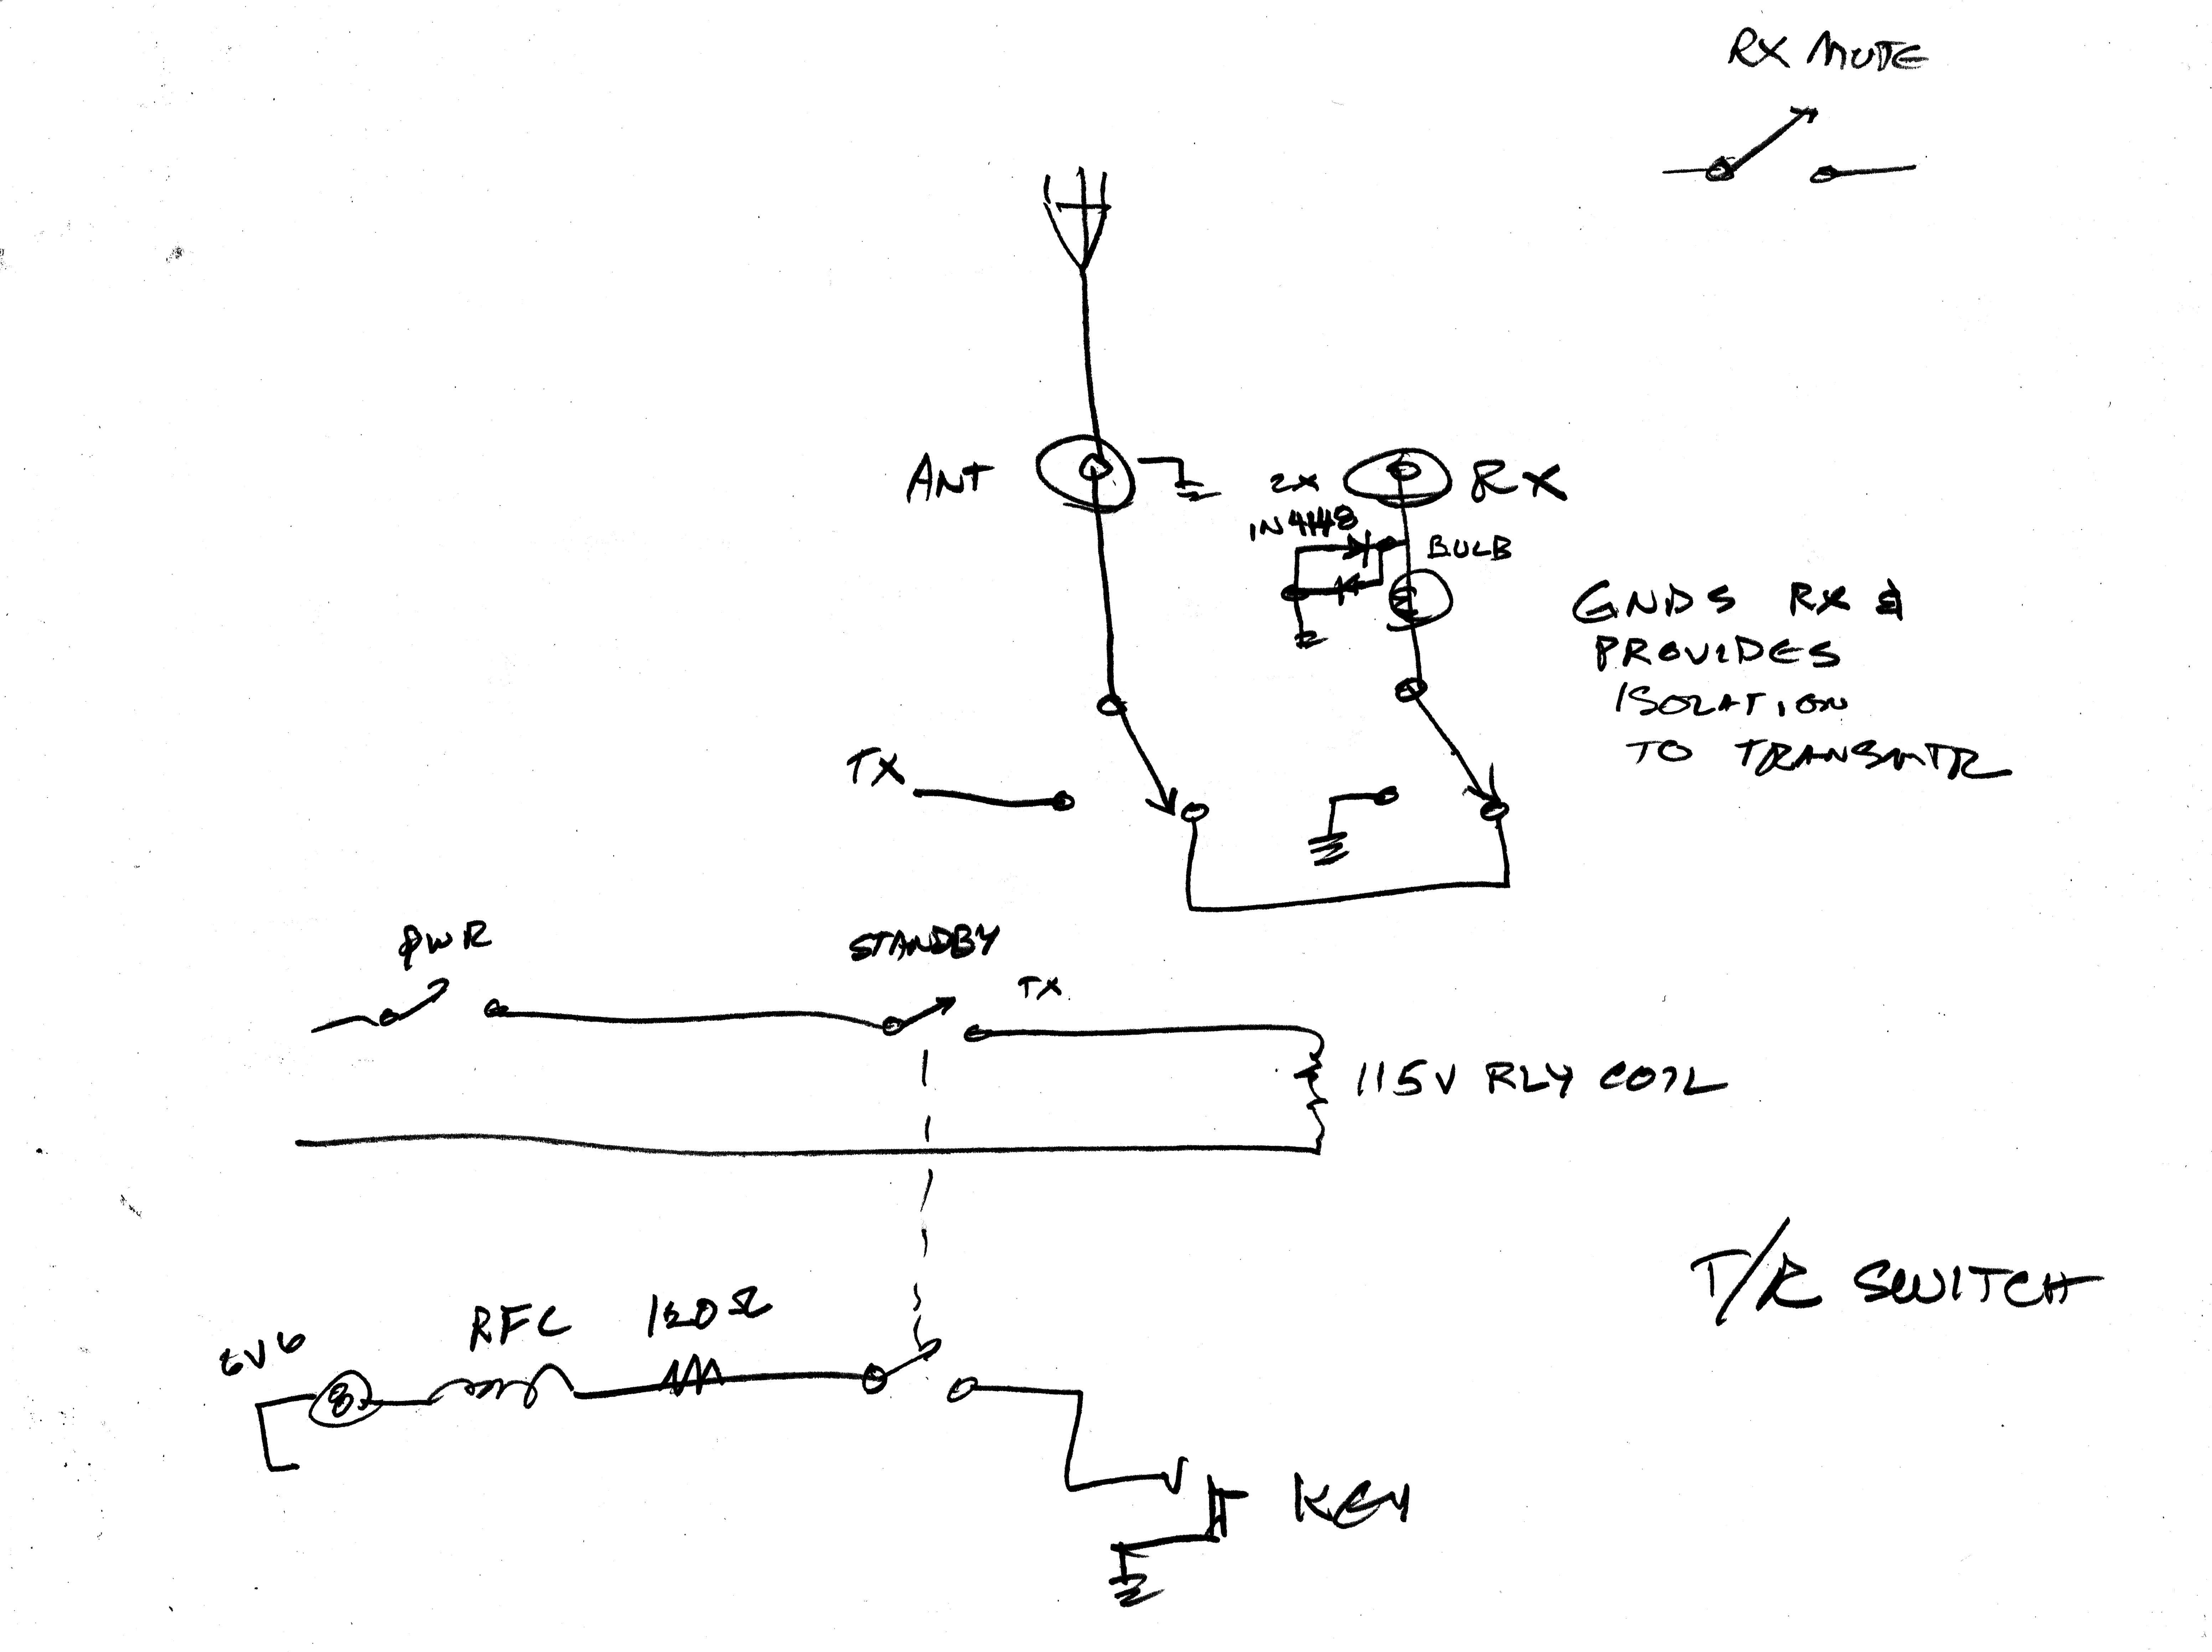 RX MUTE
ANT
2X
RX
1N4148
BULB
GNDS RX &
PROVIDES
ISOLATION
TO TRANSMTR
TX
PWR
STANDBY
TX
115V RLY COIL
T/R SWITCH
RFC
6V6
KEY